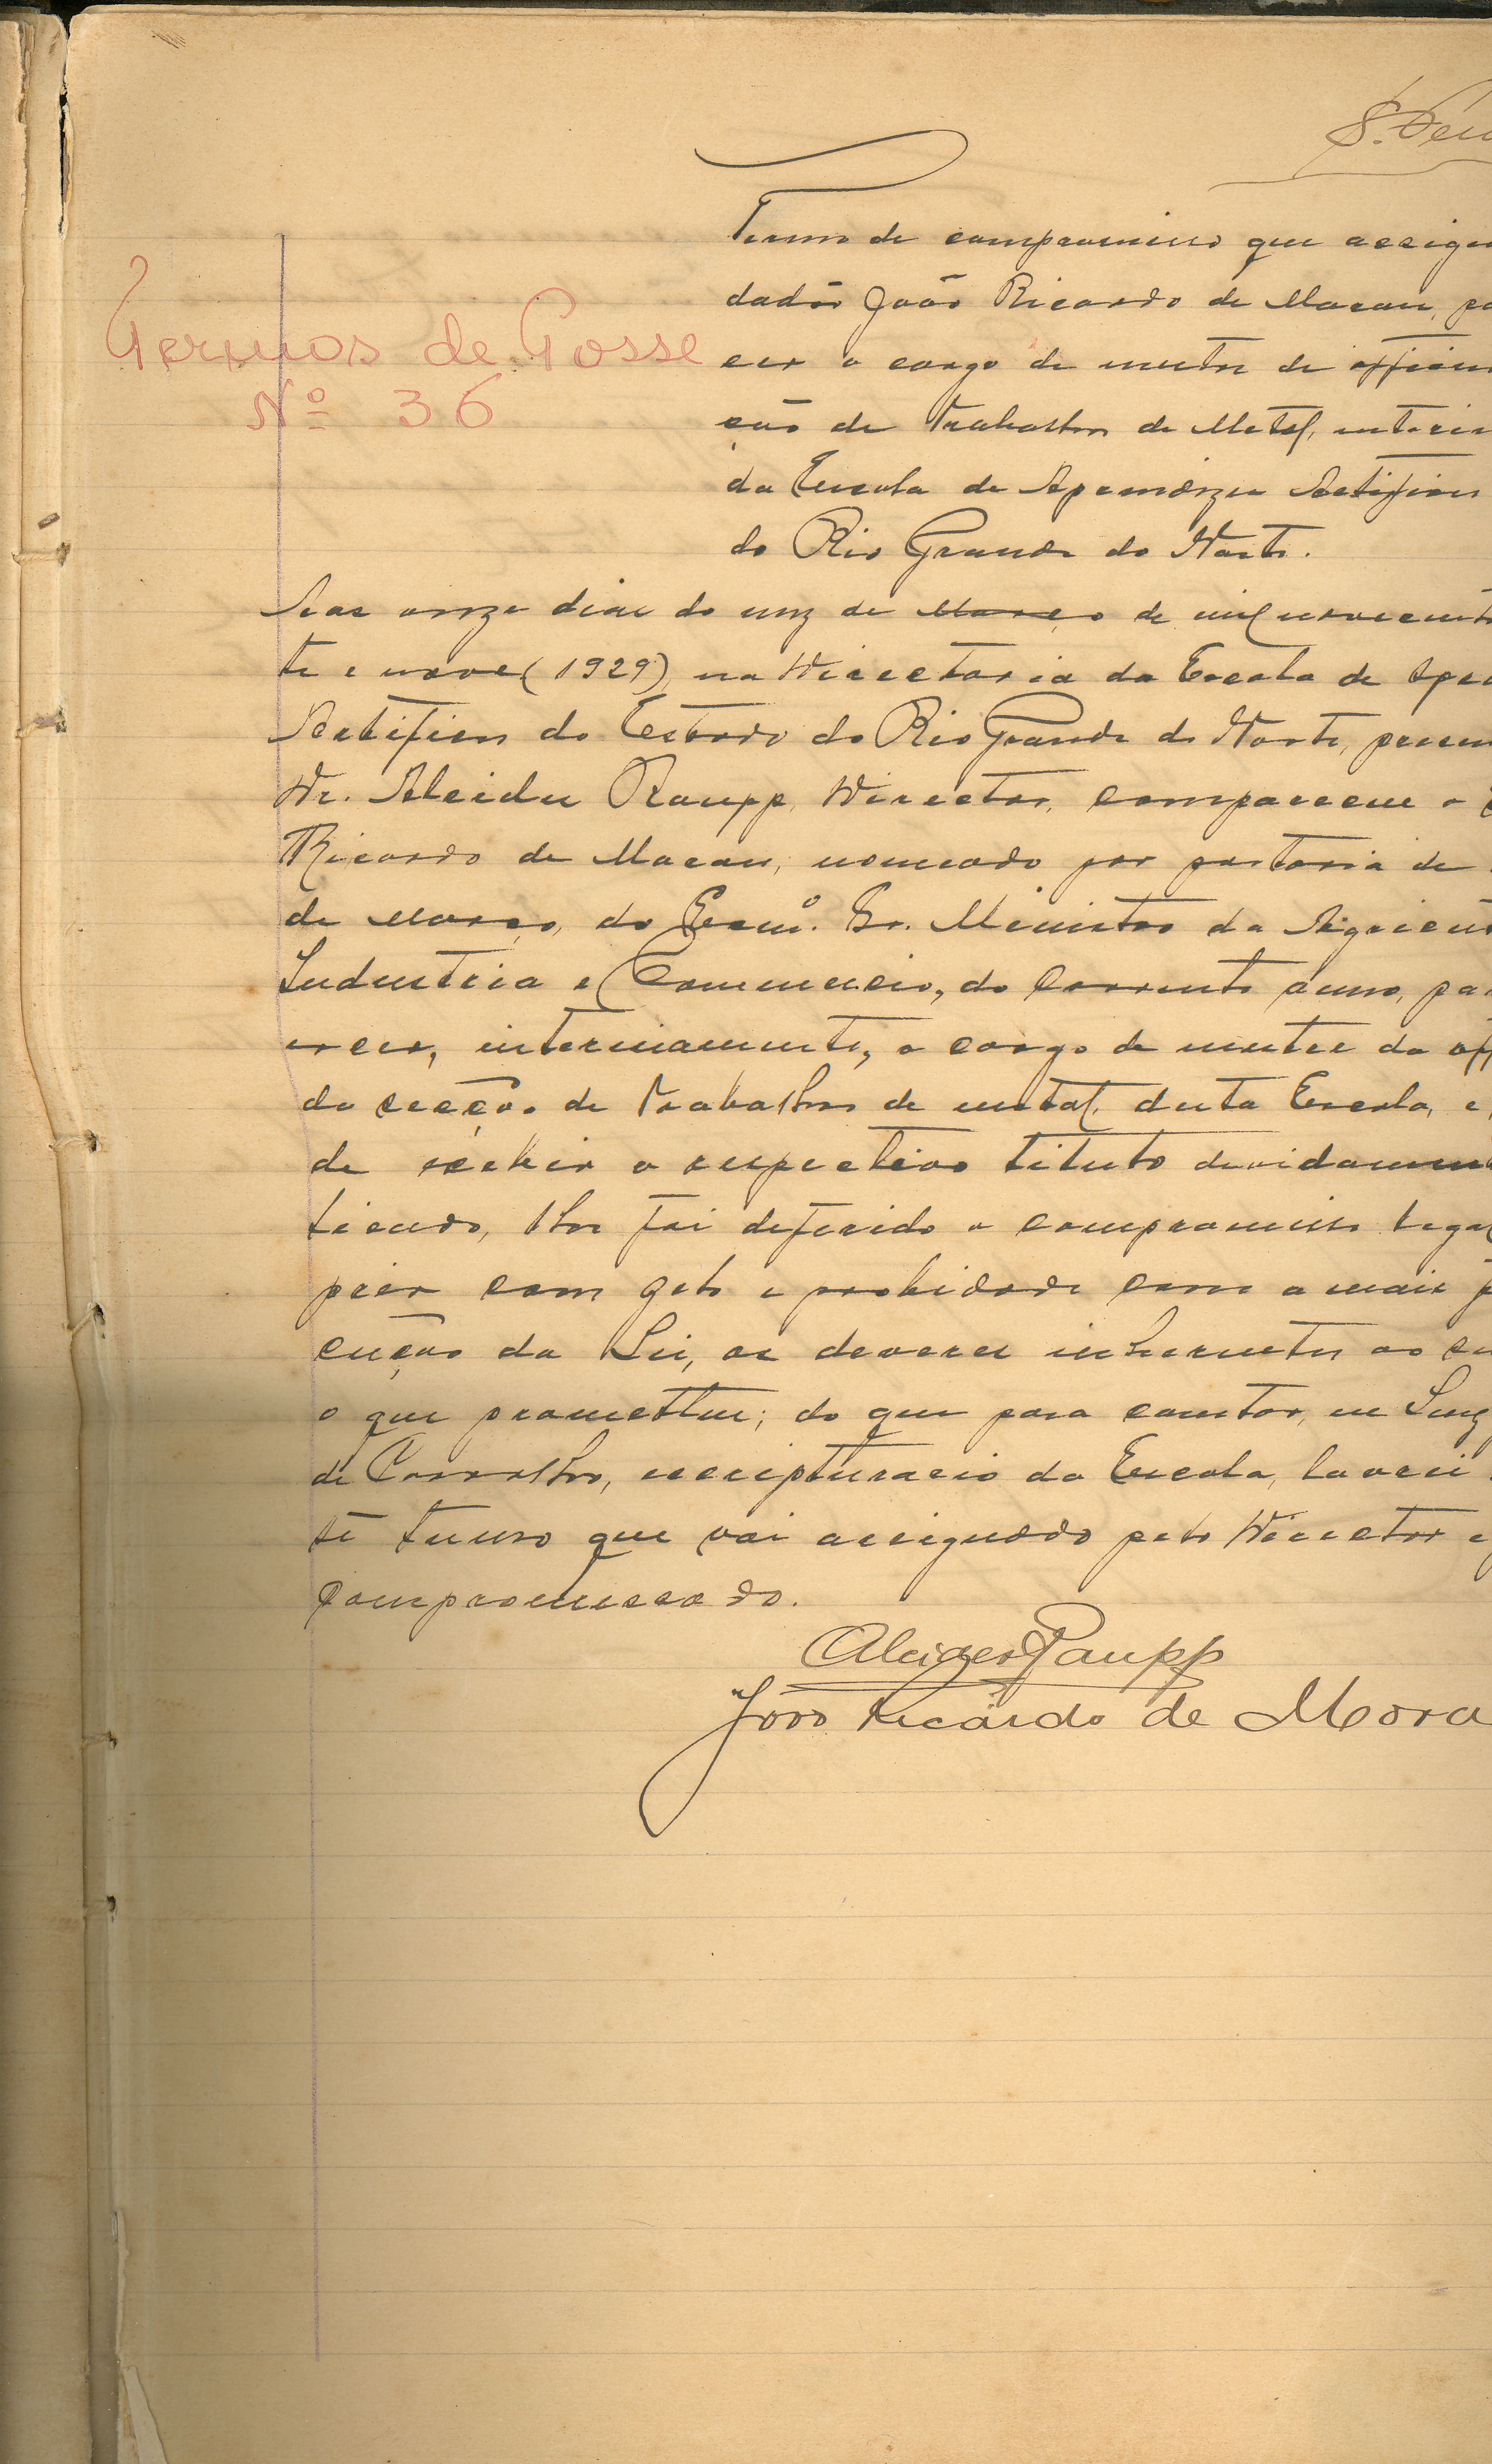 Termos de Posse
Nº 36
Termo de compromisso que assign
dadão João Ricardo de Moraes, pa
cer o cargo de mestre de officin
ção de Trabalhos de Metal, interin
da Escola de Aprendizes Artifices
do Rio Grande do Norte.
Aos onze dias do mez de Março de mil novecento
te e nove (1929), na Directoria da Escola de Apre
Artifices do Estado do Rio Grande do Norte, presen
Dr. Alcides Raupp, Director, compareceu o
Ricardo de Moraes, nomeado por portaria de
de Março, do Exmº. Sr. Ministro da Agricul
Industria e Commercio, do corrente anno, pa
ercer, interinamente, o cargo de mestre da off
da secção de Trabalhos de metal, desta Escola, e,
de exhibir o respectivo titulo devidamen
ticado, lhe foi deferido o compromisso legal
prir com zelo e probidade com a mais f
cução da Lei, os deveres inherentes ao seu
o que prometteu; do que para constar, eu Luiz
de Carvalho, escripturario da Escola, lavrei
te termo que vai assignado pelo Director e
compromissado.
Alcides Raupp
João Ricardo de Mora